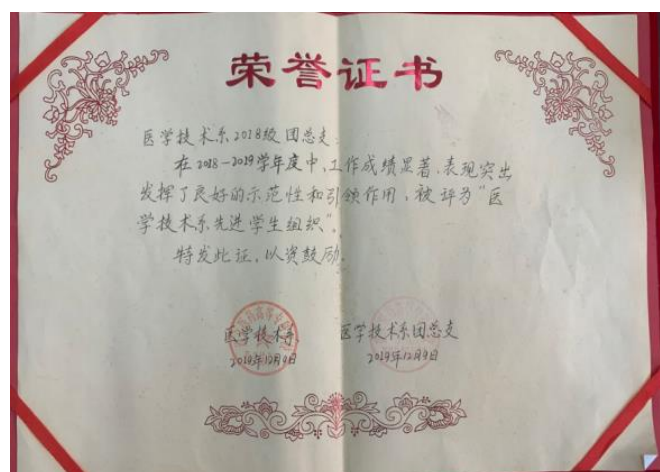 荣誉证书
医学技术系2018级团总支:
在2018-2019学年度中,工作成绩显著、表现突出
发挥了良好的示范性和引领作用,被评为“医
学技术系先进学生组织”。
特发此证,以资鼓励。
医学技术系 医学技术系团总支
2019年12月9日 2019年12月9日